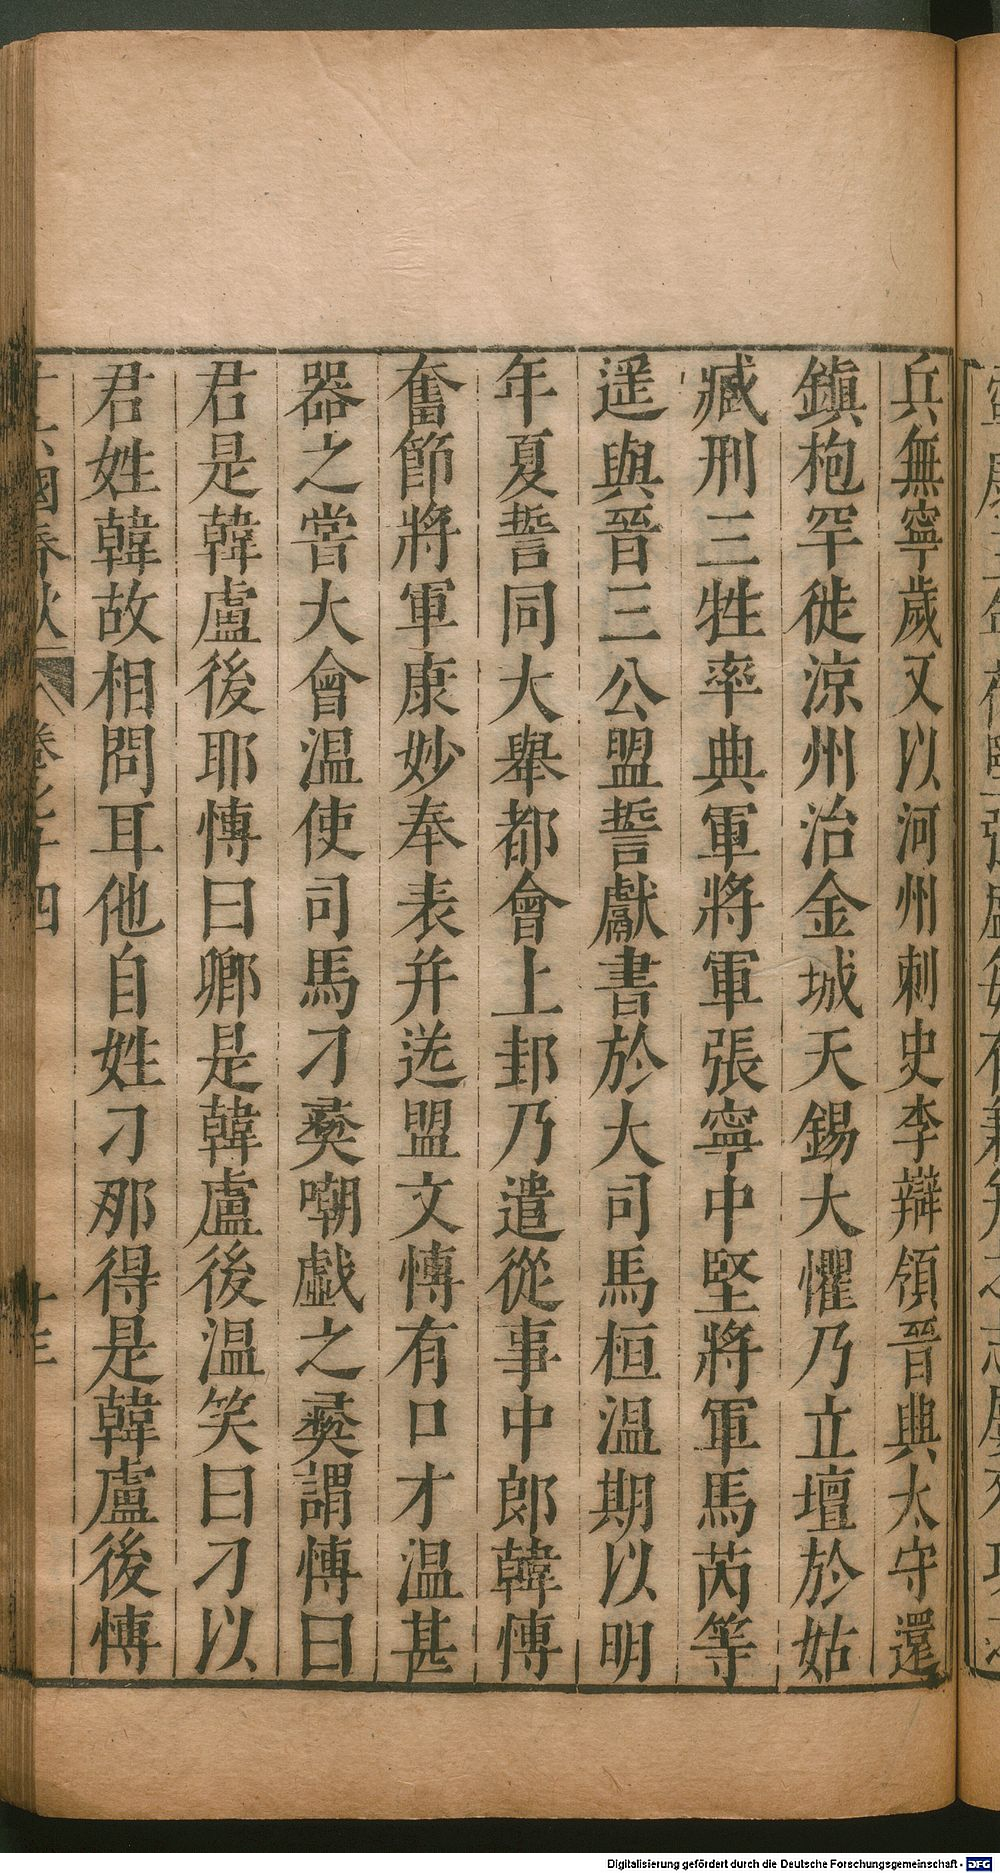 兵無寧歲又以河州刺史李辯領晉興太守還
鎮枹罕徙涼州治金城天錫大懼乃立壇於姑
臧刑三牲率典軍將軍張寧中堅將軍馬芮等
遥與晉三公盟誓獻書於大司馬桓温期以明
年夏誓同大舉都會上邽乃遣從事中郎韓慱
奮節將軍康妙奉表并送盟文慱有口才温甚
器之嘗大會温使司馬刁彛嘲戲之彛謂慱曰
君是韓盧後耶慱曰卿是韓盧後温笑曰刁以
君姓韓故相問耳他自姓刁那得是韓盧後慱
十六國春秋 卷之七十四 十三
Digitalisierung gefördert durch die Deutsche Forschungsgemeinschaft - DFG